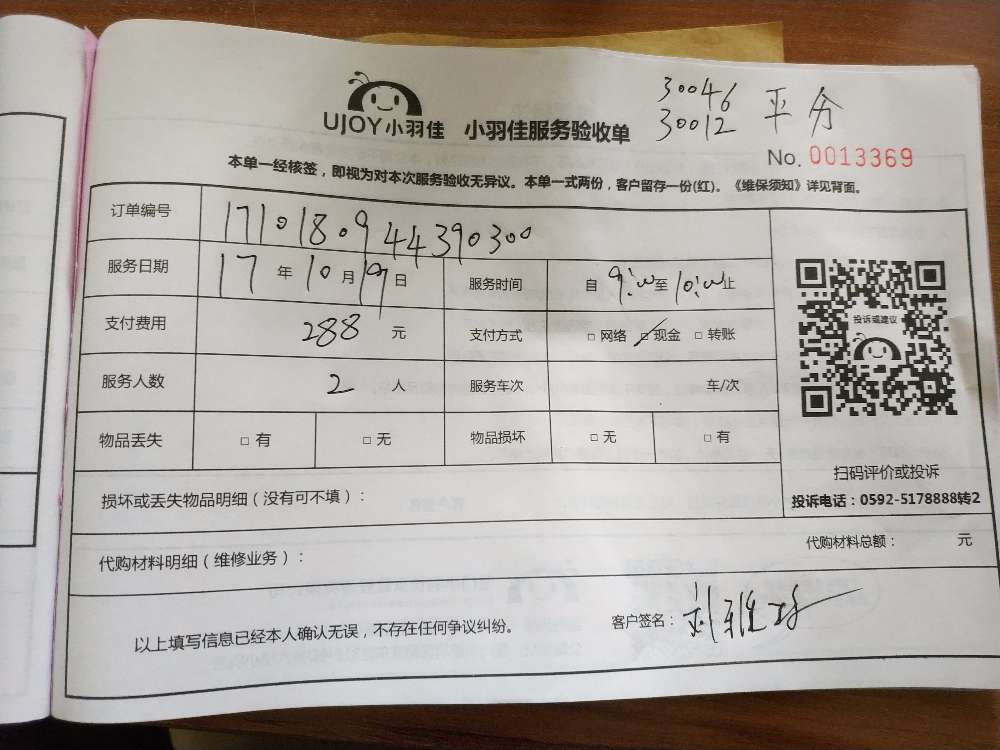 30046
30012 平分
UJOY小羽佳 小羽佳服务验收单
No. 0013369
本单一经核签，即视为对本次服务验收无异议。本单一式两份，客户留存一份(红)。《维保须知》详见背面。
订单编号 1710180944390300
服务日期 17 年 10 月 19 日 服务时间 自 9:00 至 10:00 止
支付费用 288 元 支付方式 □ 网络 ☑ 现金 □ 转账
服务人数 2 人 服务车次 车/次
物品丢失 □ 有 □ 无 物品损坏 □ 无 □ 有
投诉或建议
扫码评价或投诉
投诉电话：0592-5178888转2
损坏或丢失物品明细（没有可不填）：
代购材料明细（维修业务）： 代购材料总额： 元
以上填写信息已经本人确认无误，不存在任何争议纠纷。 客户签名：